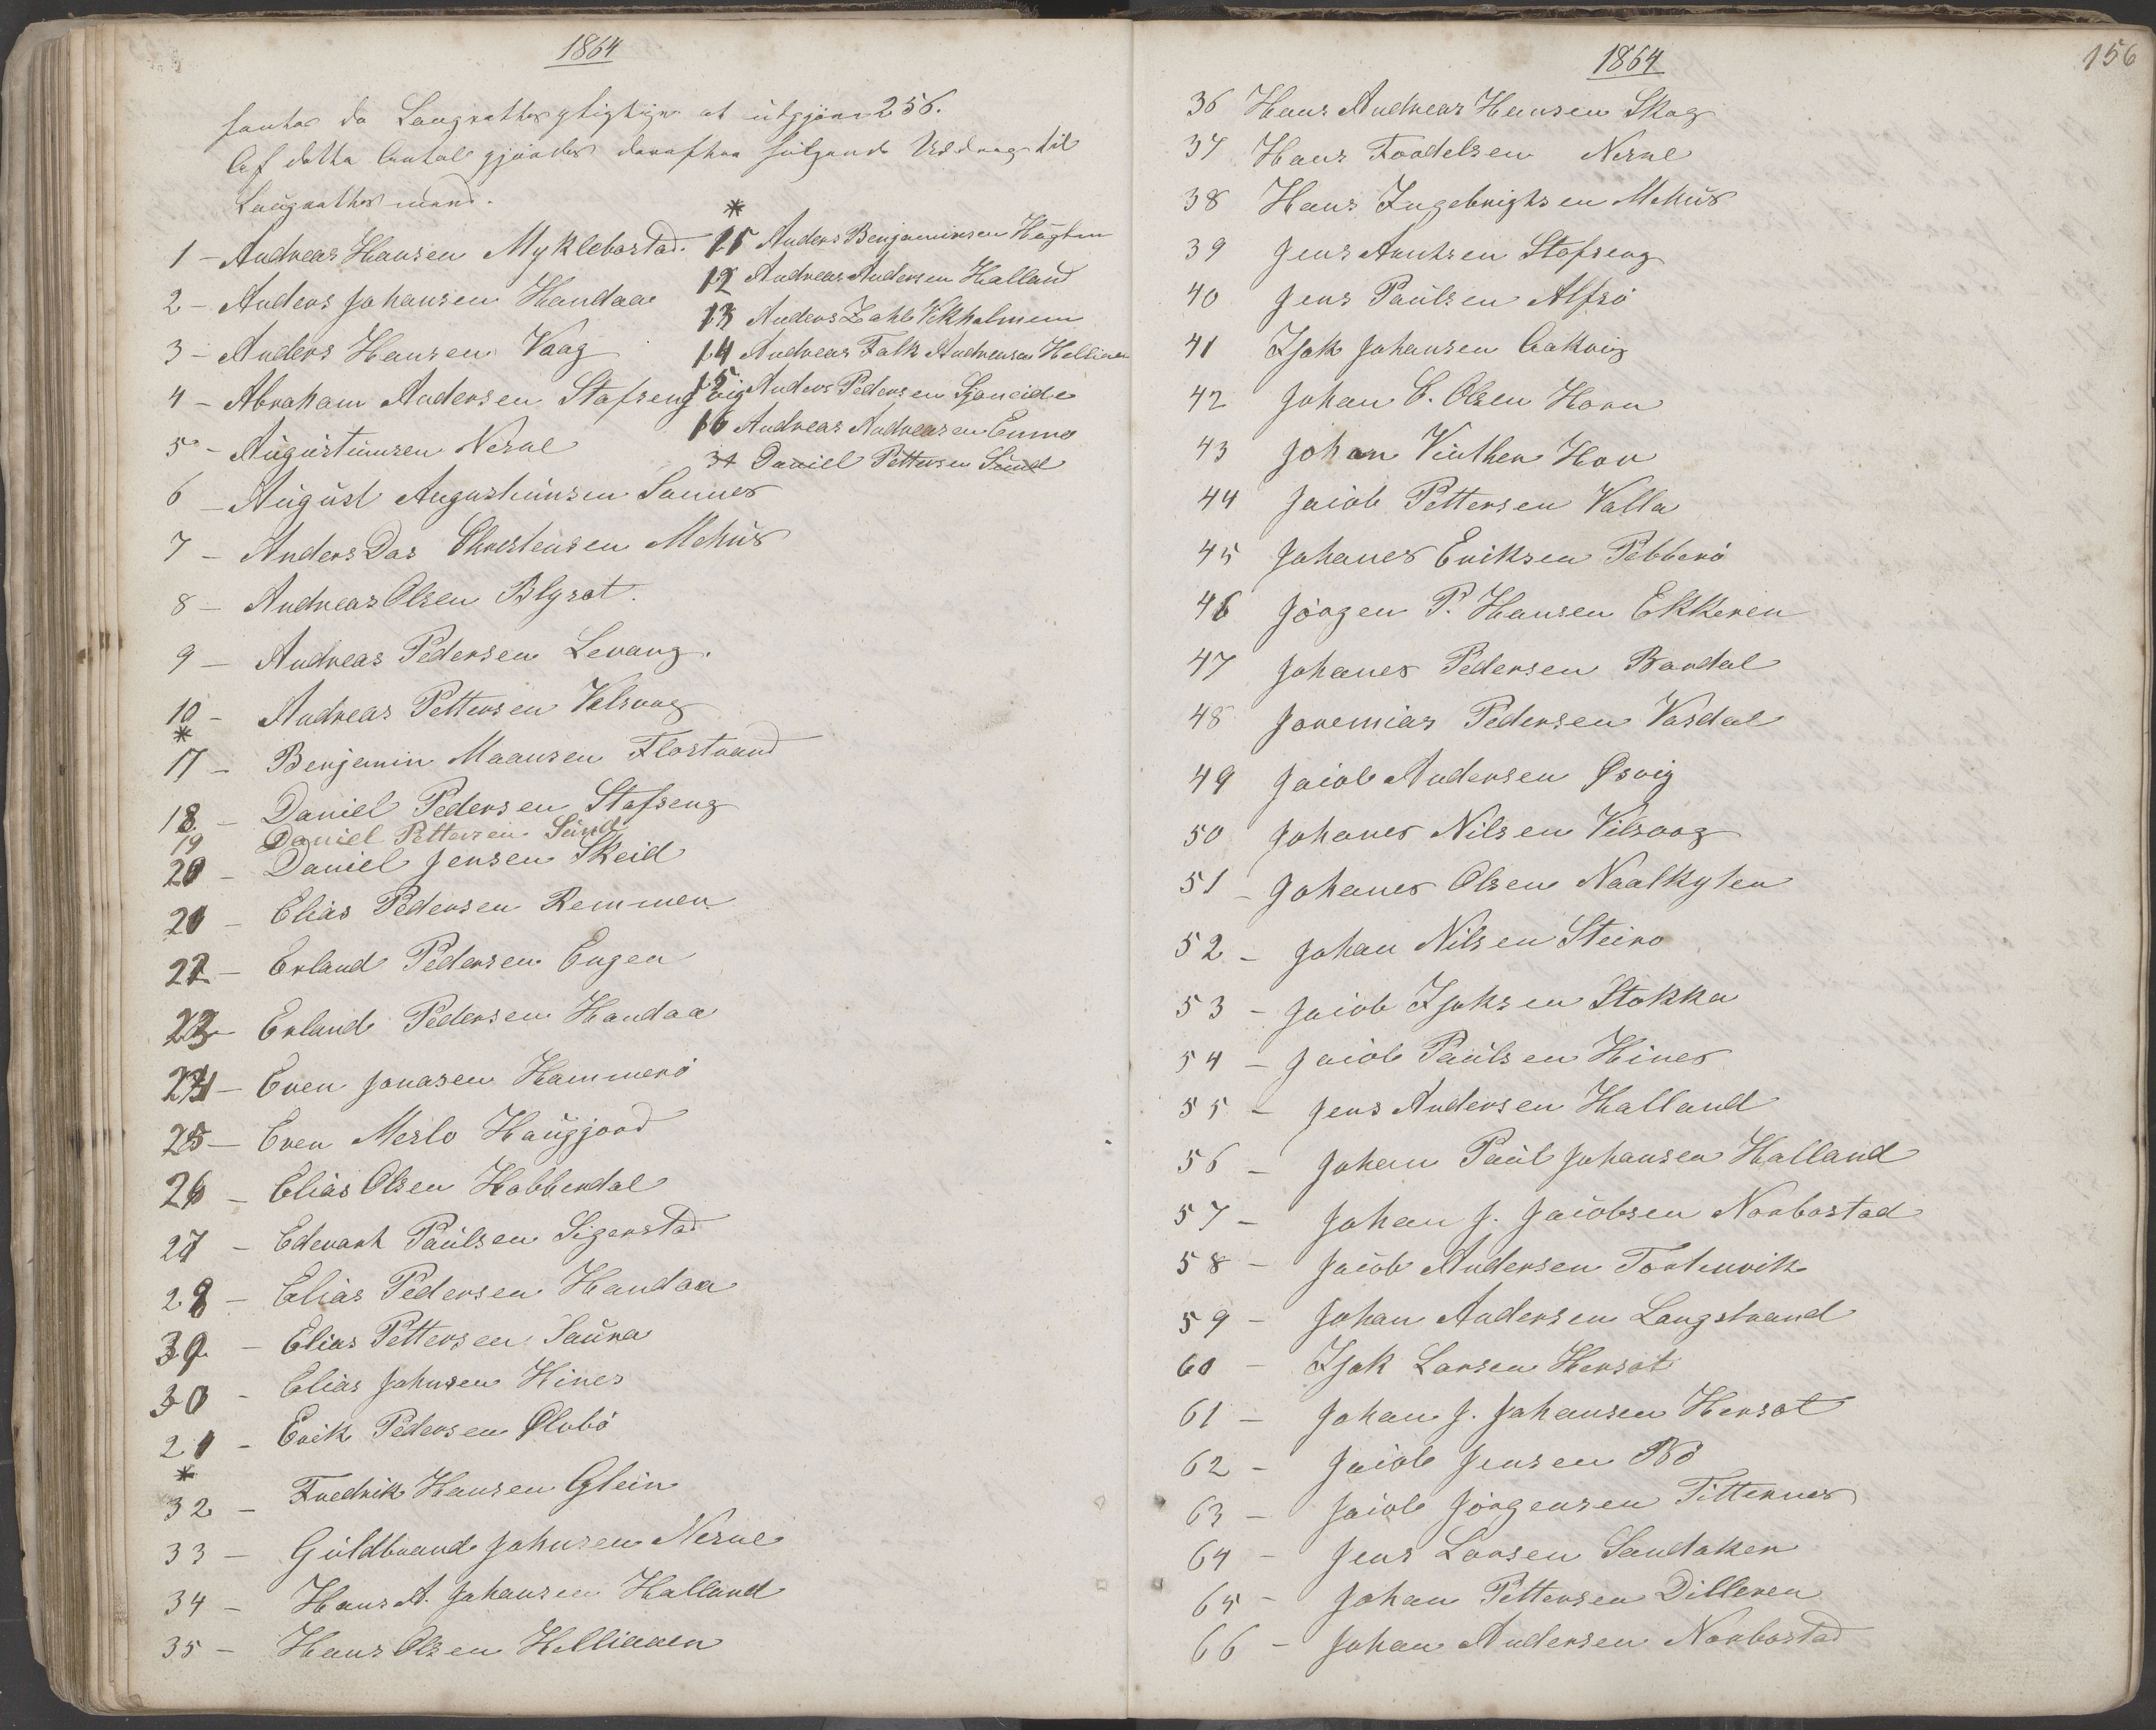 1864
fantes da Laugrettespligtige at udgjøre 256.
Af dette Antal gjordes derefter følgende Uddrag til
Laugrettesmænd.
1 - Andreas Hansen Myklebostad.
2 - Anders Johansen Handaa
3 - Anders Hansen Vaag
4 - Abraham Andersen Stafsengvig
5 - Augustinusen Nesne
6 - August Augustinusen Sannes
7 - Anders Das Christensen Mehus
8 - Andreas Olsen Blysot.
9 - Andreas Pedersen Levang.
10 - Andreas Pettersen Velsvog
*
11 Anders Benjaminsen Hugten
12 Andreas Andersen Halland
13 Anders Zahl Vikholmen
14 Andreas Falk Andreasen Hellines
15 Anders Pedersen Sjoneide
16 Andreas Andreasen Enmo
31 Daniel Pettersen Sund
*
17 - Benjamin Maansen Flostrand
18 - Daniel Pedersen Stafseng
19 Daniel Pettersen Sund
20 - Daniel Jensen Skeid
21 - Elias Pedersen Remmen
22 - Erland Pedersen Engen
23 - Erland Pedersen Handaa
24 - Even Jonasen Hammerö
25 - Even Meslo Haugjord
26 - Elias Olsen Habberdal
27 - Edevart Paulsen Sigerstad
28 - Elias Pedersen Handaa
39 - Elias Pettersen Saura
30 - Elias Johnsen Hines
21 - Erik Pedersen Ølvbö
*
32 - Fredrik Hansen Glein
33 - Guldbrand Johnsen Nesne
34 - Hans A. Johansen Halland
35 - Hans Olsen Helliaaen
1864
156
36 Hans Andreas Hansen Skog
37 Hans Toodelsen Nesne
38 Hans Ingebrigtsen Mehus
39 Jens Arntsen Stafseng
40 Jens Paulsen Alfsö
41 Isak Johansen Aakvig
42 Johan C. Olsen Horn
43 Johan Vinther Hov
44 Jacob Pettersen Valla
45 Johanes Eriksen Pebberö
46 Jörgen P. Hansen Ekkeren
47 Johanes Pedersen Bardal
48 Joremias Pedersen Vasdal
49 Jacob Andersen Øsvig
50 Johanes Nilsen Vilsvog
51 - Johanes Olsen Naalkylen
52 - Johan Nilsen Steiro
53 - Jacob Isaksen Stokka
54 - Jacob Paulsen Hines
55 - Jens Andersen Halland
56 - Johan Paul Johansen Halland
57 - Johan J. Jacobsen Norbostad
58 - Jacob Andersen Tortenvik
59 - Johan Andersen Langstrand
60 - Isak Larsen Hersot
61 - Johan J. Johansen Hersot
62 - Jacob Jensen Bö
63 - Jacob Jörgensen Titternes
64 - Jens Larsen Sandaker
65 - Johan Pettersen Dilleren
66 - Johan Andersen Norbostad